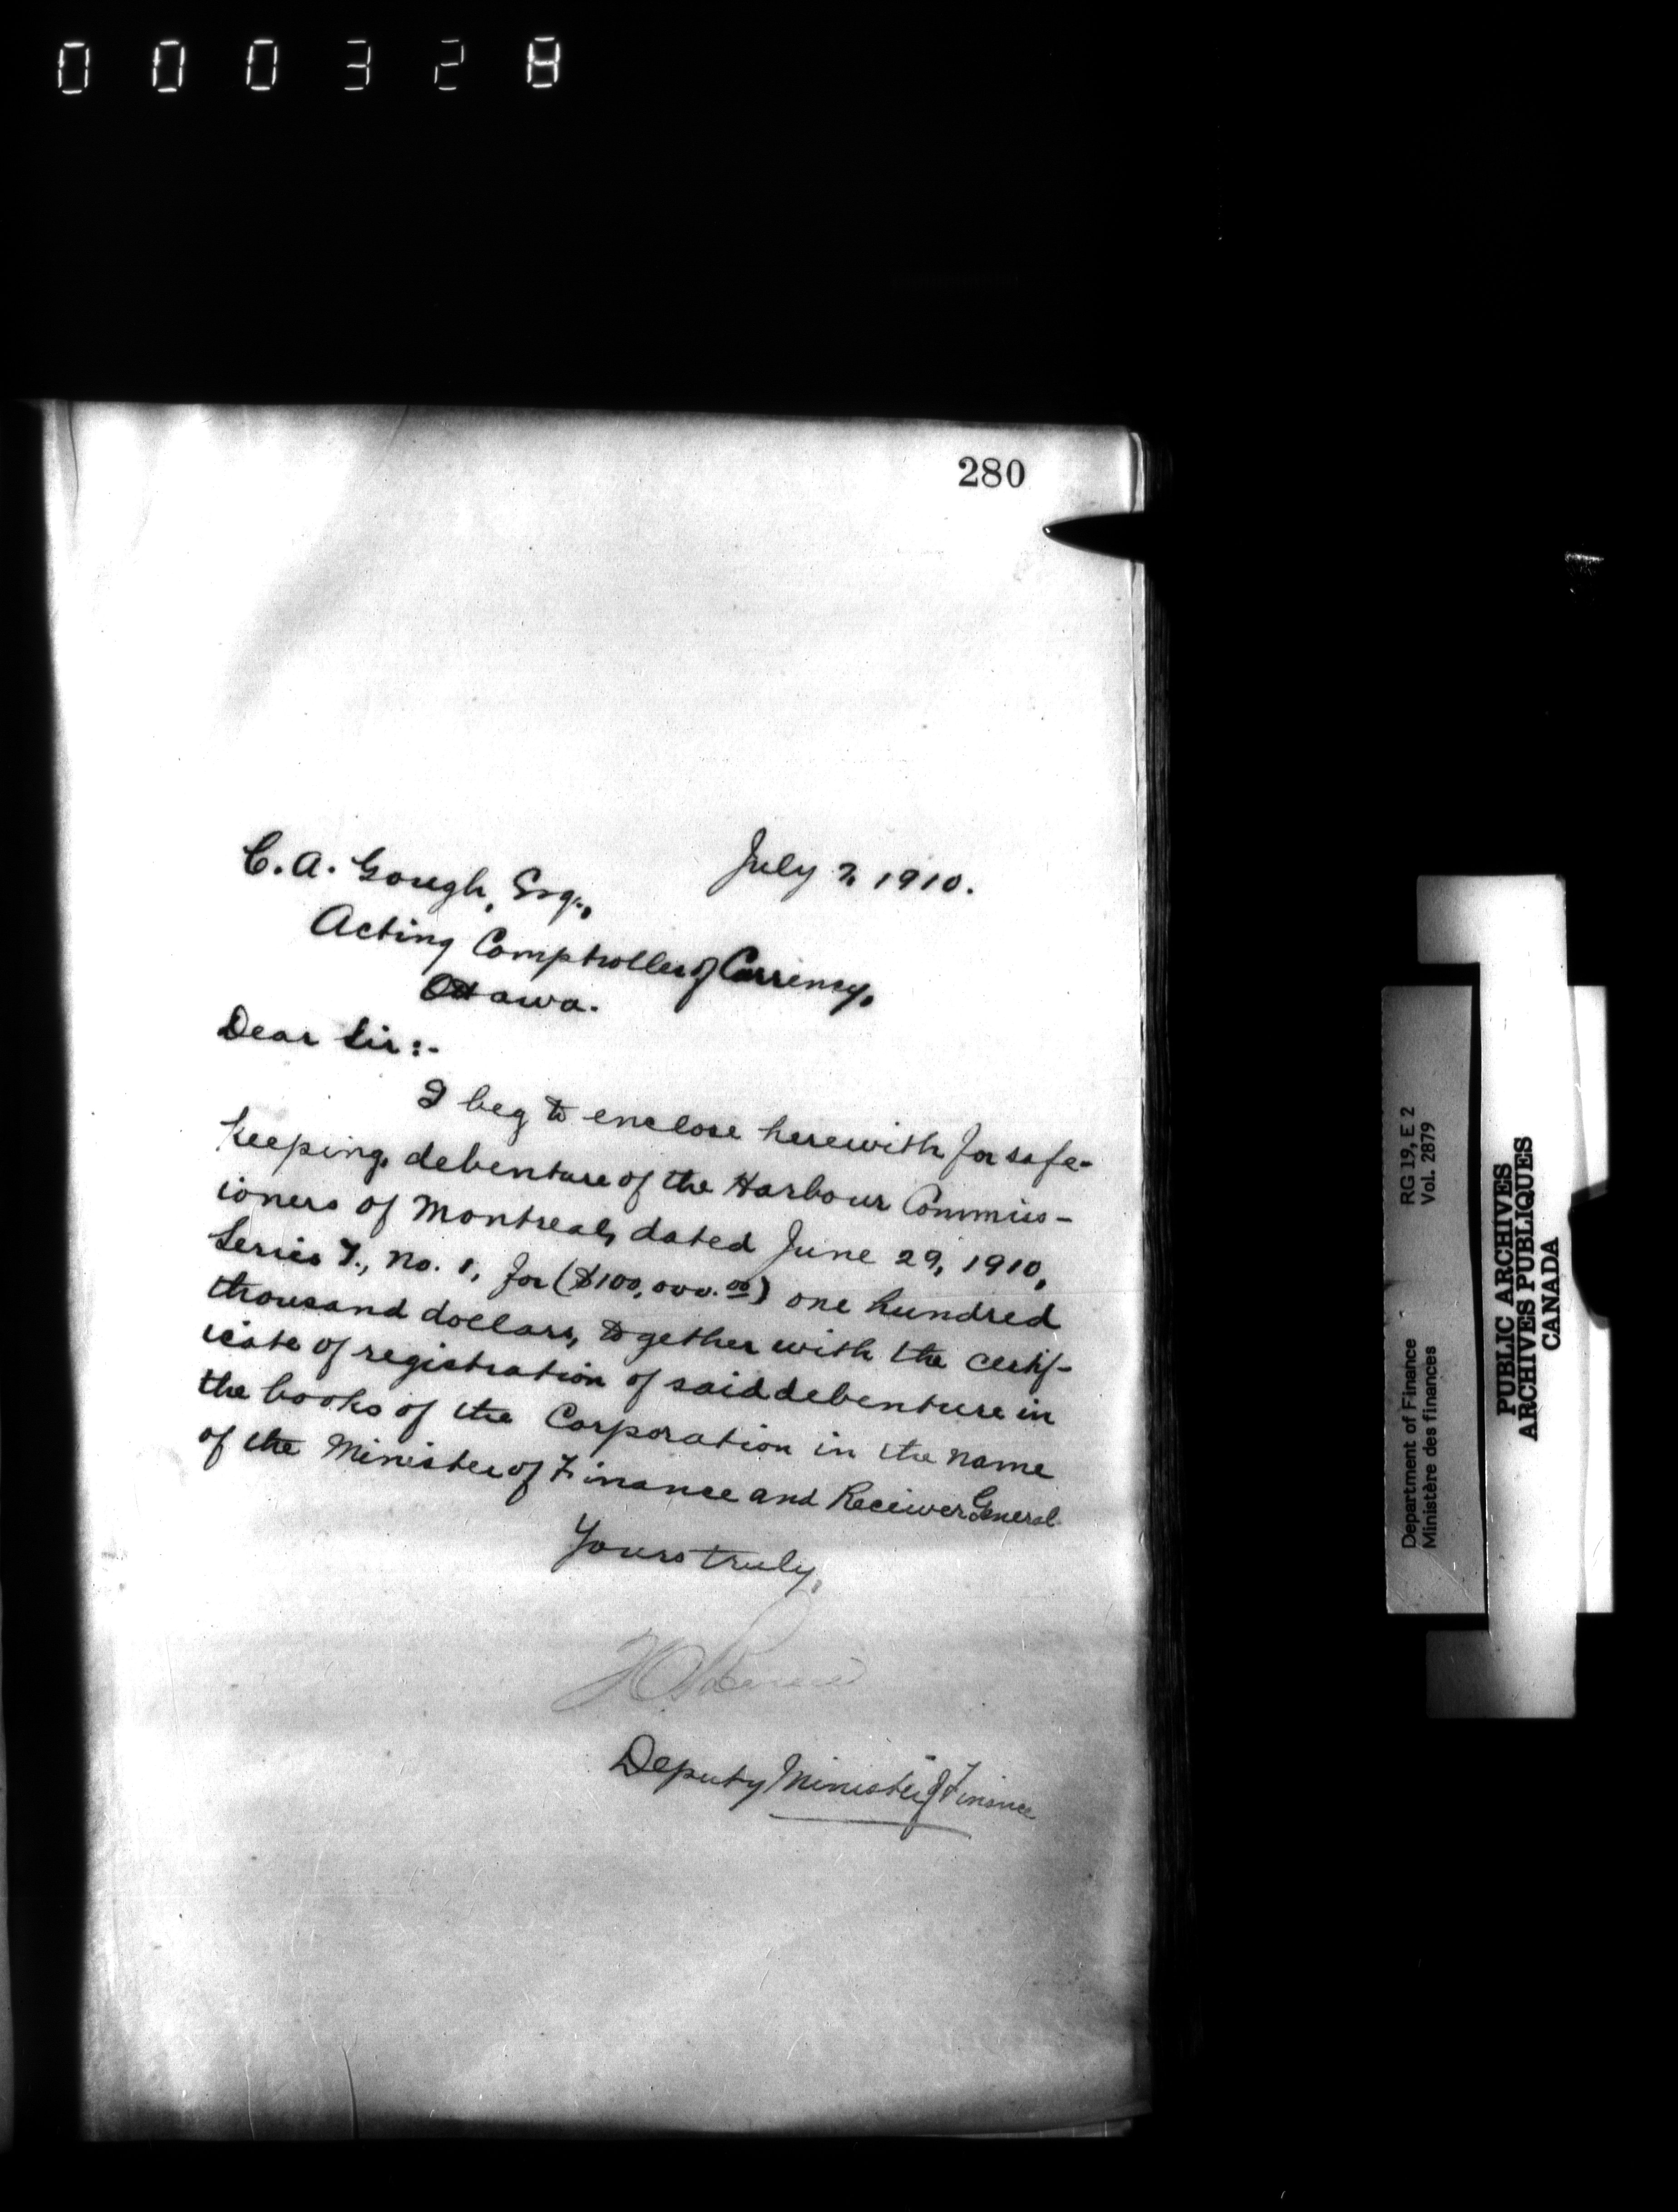 000328
280
July 2, 1910.
C. A. Gough, Esq.,
Acting Comptroller of Currency,
Ottawa.
Dear Sir:-
I beg to enclose herewith for safe-
keeping, debenture of the Harbour Commiss-
ioners of Montreal, dated June 29, 1910,
Series T., No. 1, for ($100,000.00) one hundred
thousand dollars, together with the certif-
icate of registration of said debenture in
the books of the Corporation in the name
of the Minister of Finance and Receiver General.
Yours truly,
Deputy Minister of Finance
Department of Finance RG 19, E 2
Ministère des finances Vol. 2879
PUBLIC ARCHIVES
ARCHIVES PUBLIQUES
CANADA